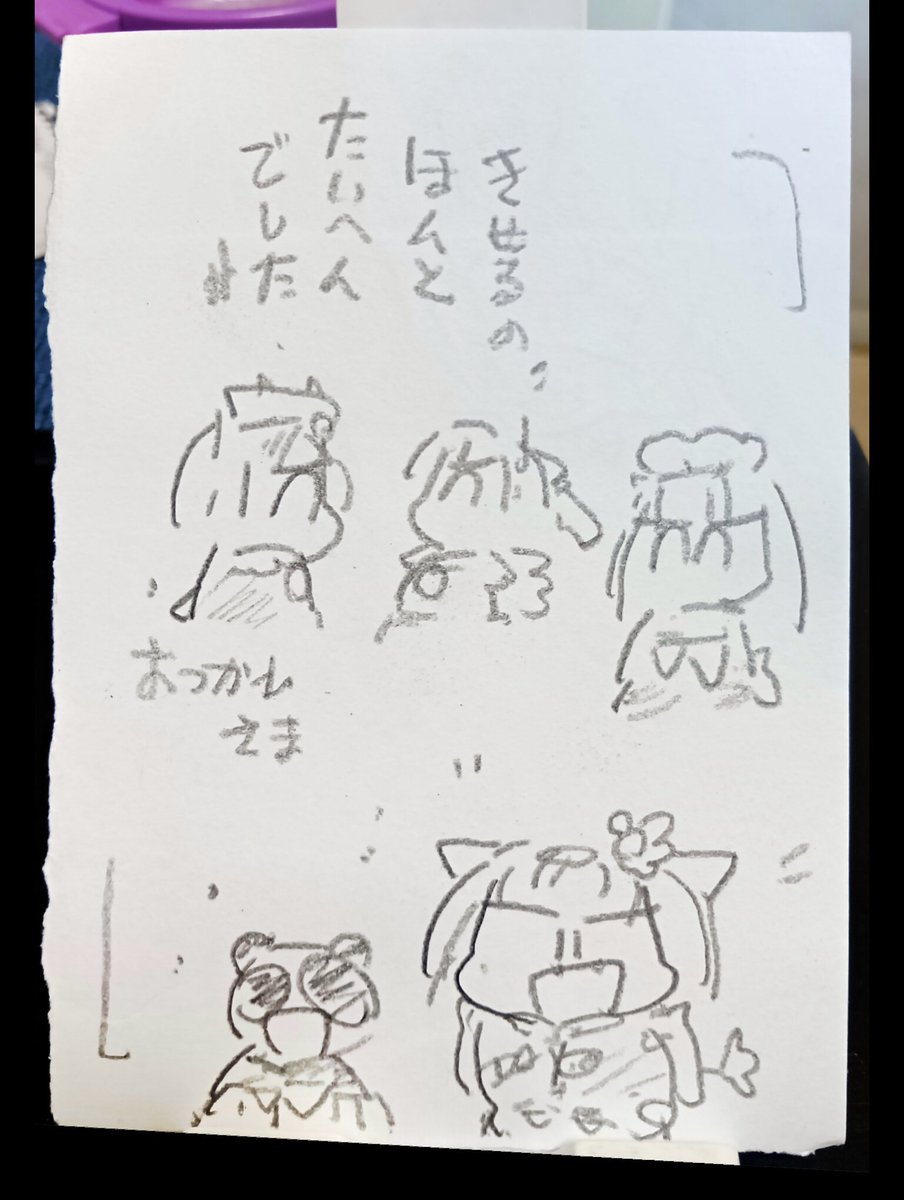 きせるの
ほんと
たいへん
でした
おつかれ
さま